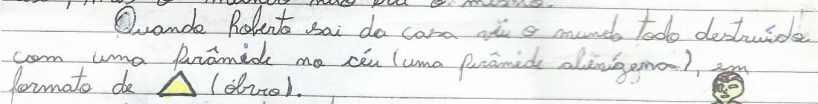 Quando Roberto sai da casa vêu o mundo todo destruído
com uma pirâmide no céu (uma pirâmide alienígena), em
formato de (óbvio).